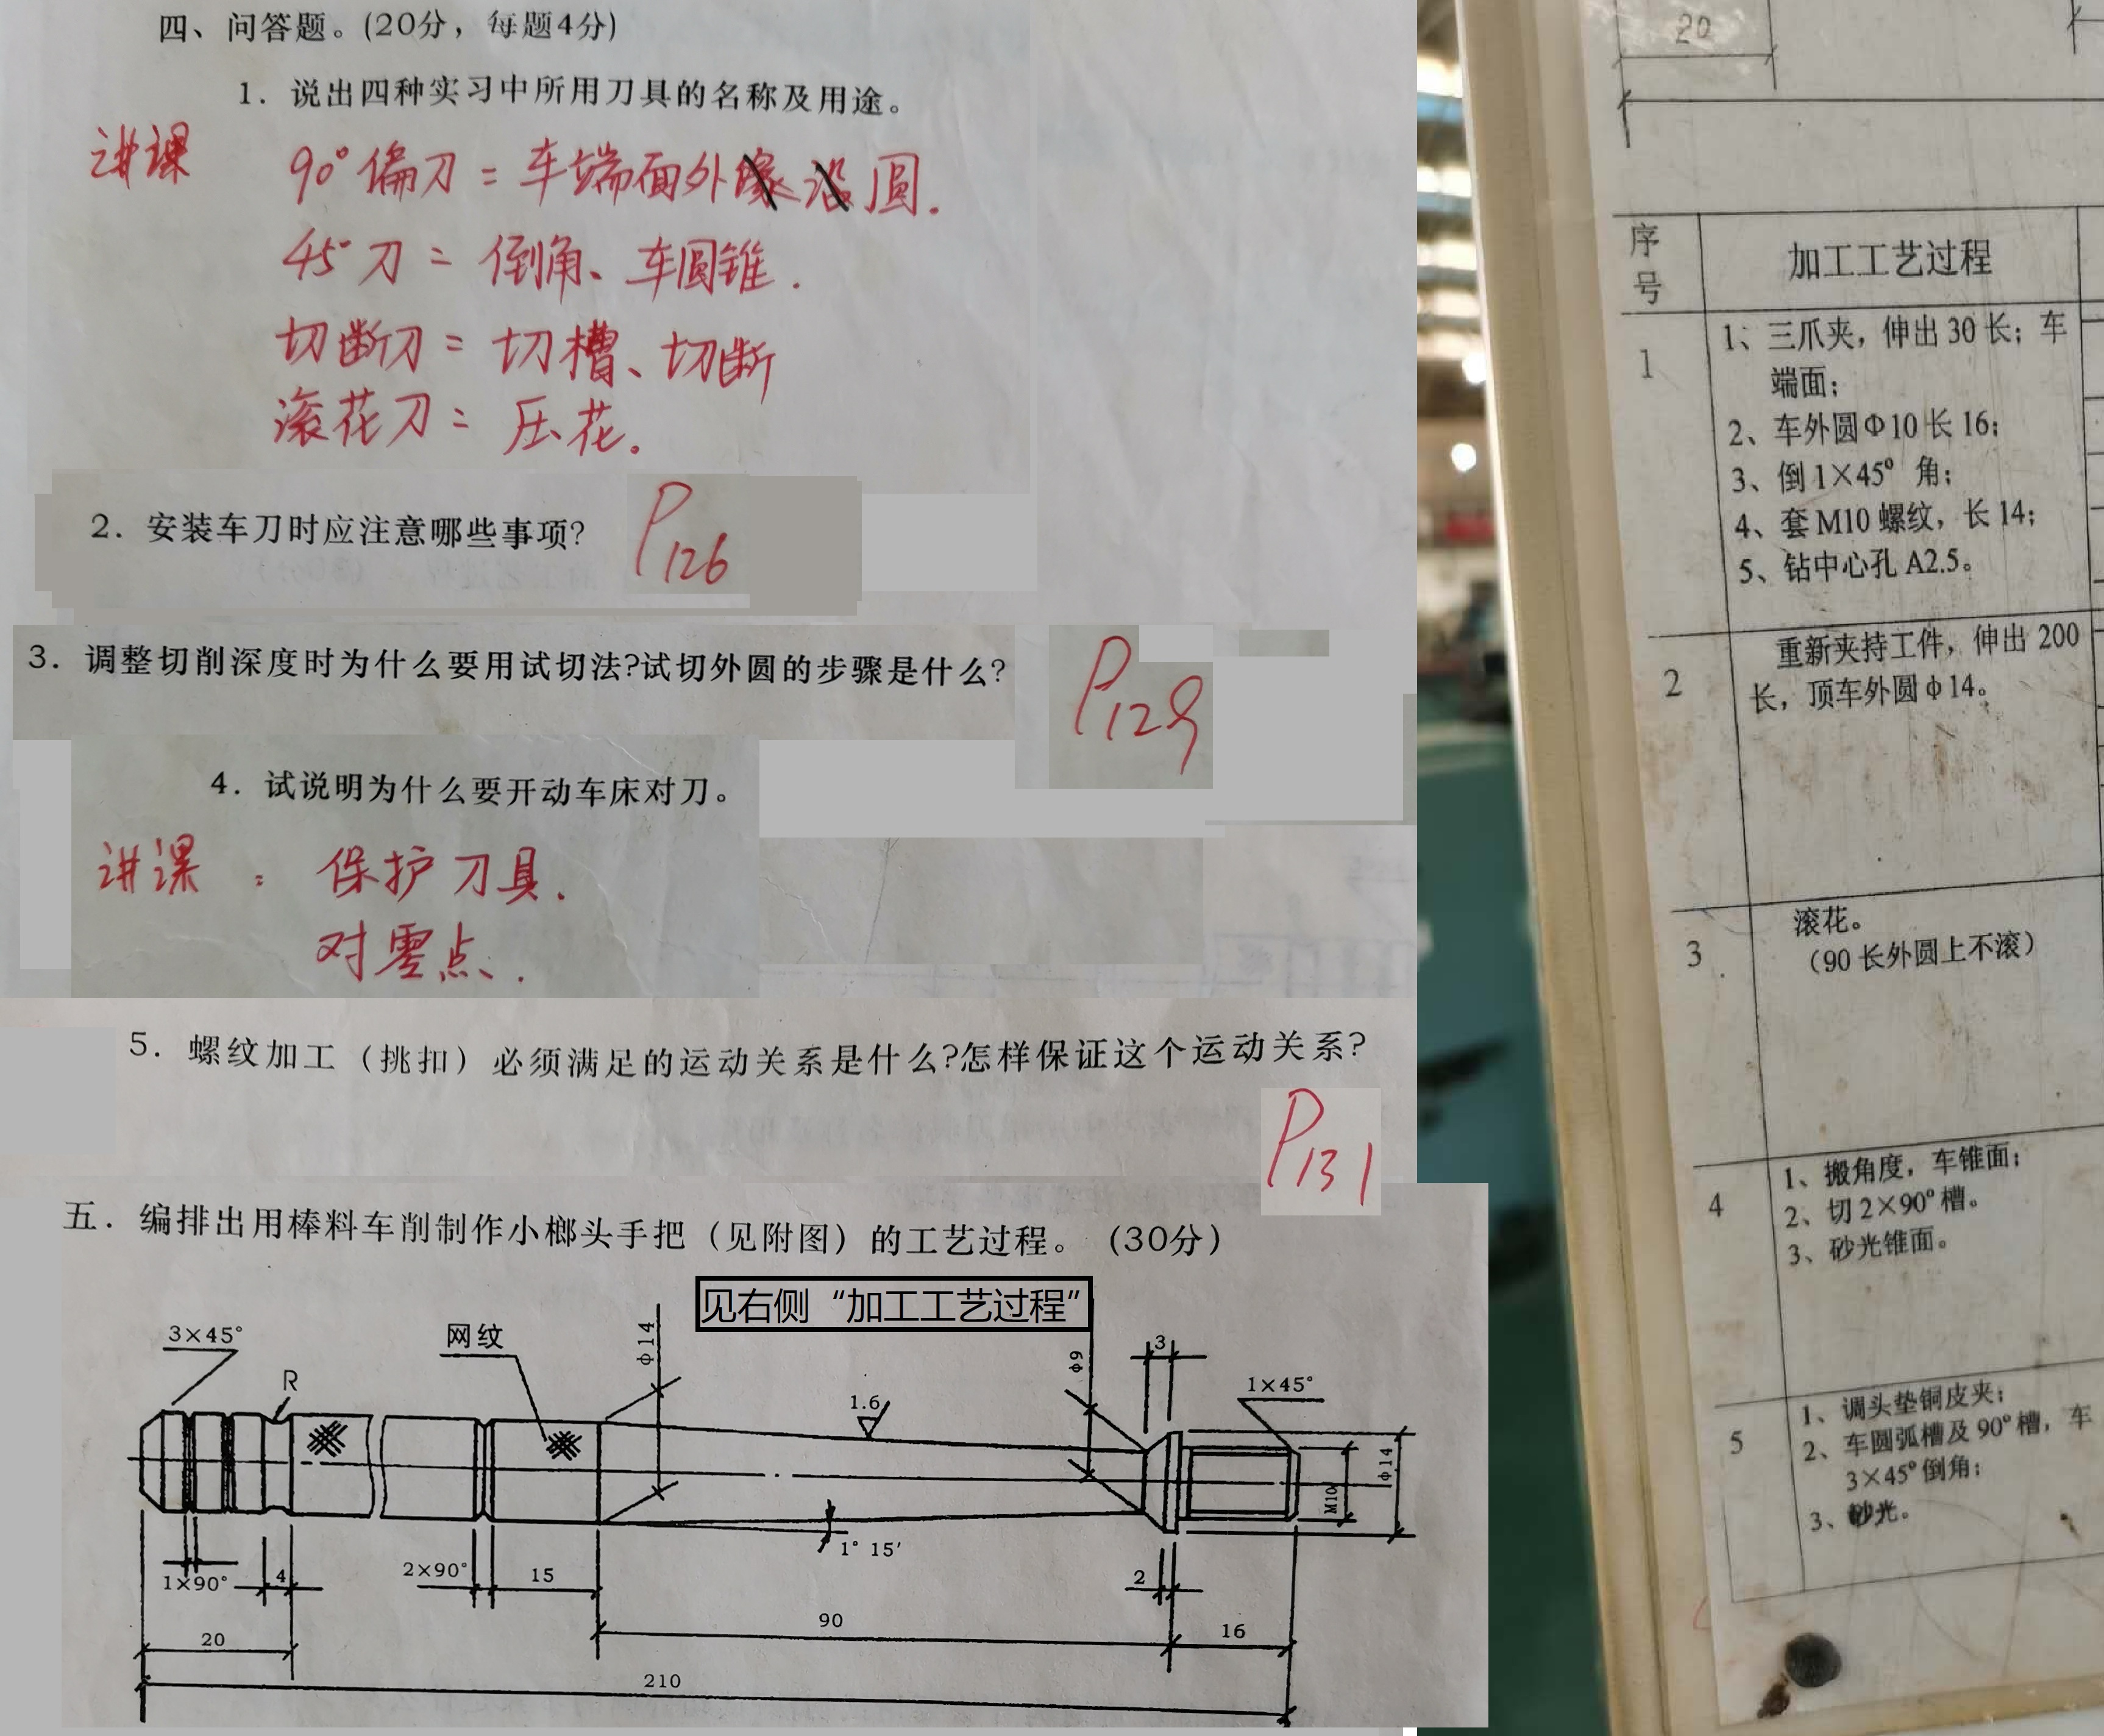 四、问答题。(20分，每题4分)
1. 说出四种实习中所用刀具的名称及用途。
讲课 90°偏刀 = 车端面外圆.
45°刀 = 倒角、车圆锥.
切断刀 = 切槽、切断
滚花刀 = 压花.
2. 安装车刀时应注意哪些事项? P126
3. 调整切削深度时为什么要用试切法?试切外圆的步骤是什么? P129
4. 试说明为什么要开动车床对刀。
讲课: 保护刀具.
对零点.
5. 螺纹加工（挑扣）必须满足的运动关系是什么?怎样保证这个运动关系?
P131
五. 编排出用棒料车削制作小榔头手把（见附图）的工艺过程。（30分）
见右侧“加工工艺过程”
3×45°
R
网纹
φ14
1.6
φ9
3
1×45°
M10
φ14
1×90°
4
2×90°
15
1° 15′
2
20
90
16
210
20
序号
加工工艺过程
1
1、三爪夹，伸出30长；车
端面；
2、车外圆Φ10长16；
3、倒1×45°角；
4、套M10螺纹，长14；
5、钻中心孔A2.5。
2
重新夹持工件，伸出200
长，顶车外圆φ14。
3
滚花。
（90长外圆上不滚）
4
1、搬角度，车锥面；
2、切2×90°槽。
3、砂光锥面。
5
1、调头垫铜皮夹；
2、车圆弧槽及90°槽，车
3×45°倒角；
3、砂光。